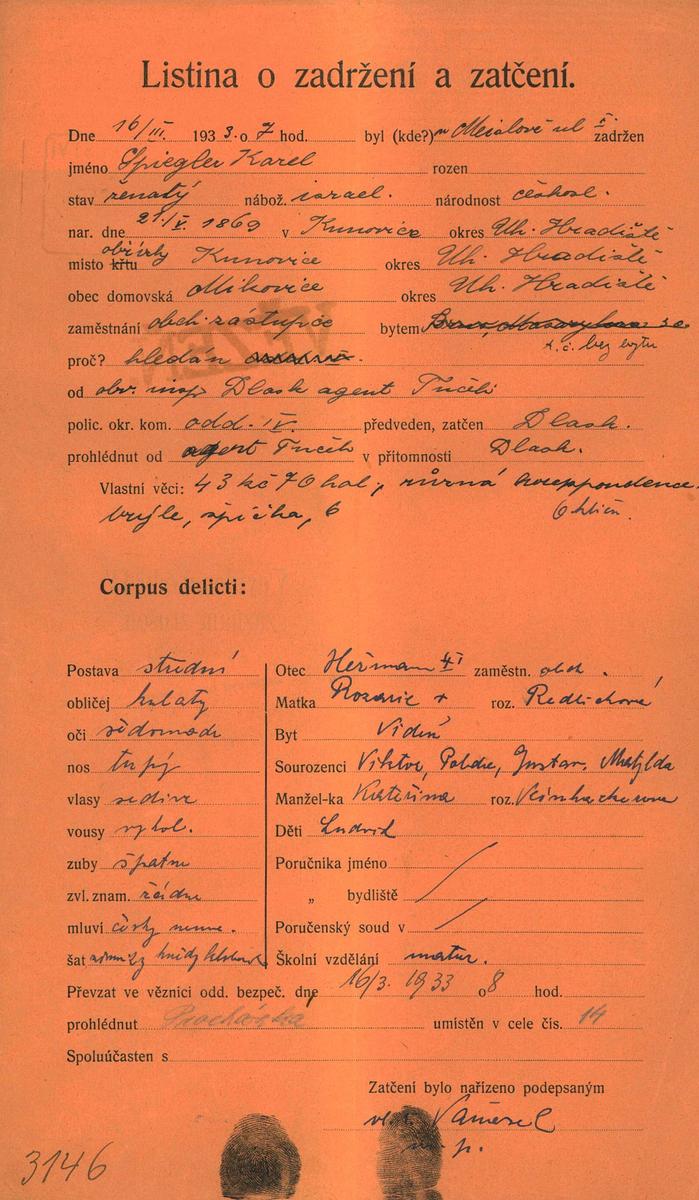 Listina o zadržení a zatčení.
Dne 16/III. 1933. o 7 hod. byl (kde?) v ul zadržen
jméno Spiegler Karel rozen
stav ženatý nábož. israel. národnost českosl.
nar. dne 21./V. 1869 v Kunovice okres Uh. Hradiště
obřízky
místo křtu Kunovice okres Uh. Hradiště
obec domovská Mikovice okres Uh. Hradiště
zaměstnání obch. zástupce bytem
t. č. bez bytu
proč? hledán
od obv. insp Dlask agent
polic. okr. kom. odd. IV. předveden, zatčen Dlask.
prohlédnut od agent v přítomnosti Dlask.
Vlastní věci: 43 kč 70 hal, různá korespondence.
brýle, špička, 6
Corpus delicti:
Postava střední
obličej kulatý
oči
nos tupý
vlasy šedivé
vousy vyhol.
zuby špatné
zvl. znam. žádné
mluví česky něm.
šat zimní hnědý
Otec Heřman zaměstn. obch.
Matka Rozarie + roz. Redlichová
Byt Vídeň
Sourozenci Viktor, Gustav, Matylda
Manžel-ka Kateřina roz.
Děti Ludvík
Poručníka jméno
„ bydliště
Poručenský soud v
Školní vzdělání matur.
Převzat ve věznici odd. bezpeč. dne 16/3. 1933 o 8 hod.
prohlédnut Procházka umístěn v cele čís. 14
Spoluúčasten s
Zatčení bylo nařízeno podepsaným
m. p.
3146